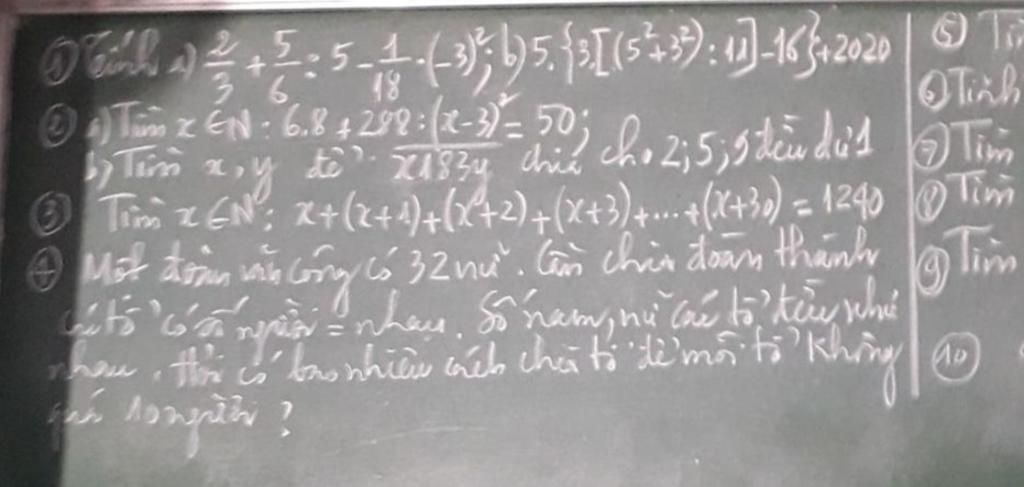 ① Tính a) 2/3 + 5/6 : 5 - 1/18 . (-3)²; b) 5.{3.[(5²+3²):11]-16}+2020
② a) Tìm x ∈ N : 6.8 + 288 : (x-3)² = 50;
b) Tìm x, y để x183y chia cho 2; 5; 9 đều dư 1
③ Tìm x ∈ N : x+(x+1)+(x+2)+(x+3)+...+(x+30) = 1240
④ Một đoàn văn công có 32 nữ. Cần chia đoàn thành
các tổ có số người = nhau. Số nam, nữ các tổ đều như
nhau. Hỏi có bao nhiêu cách chia tổ để mỗi tổ không
quá 10 người?
⑤
⑥ Tính
⑦ Tìm
⑧ Tìm
⑨ Tìm
⑩